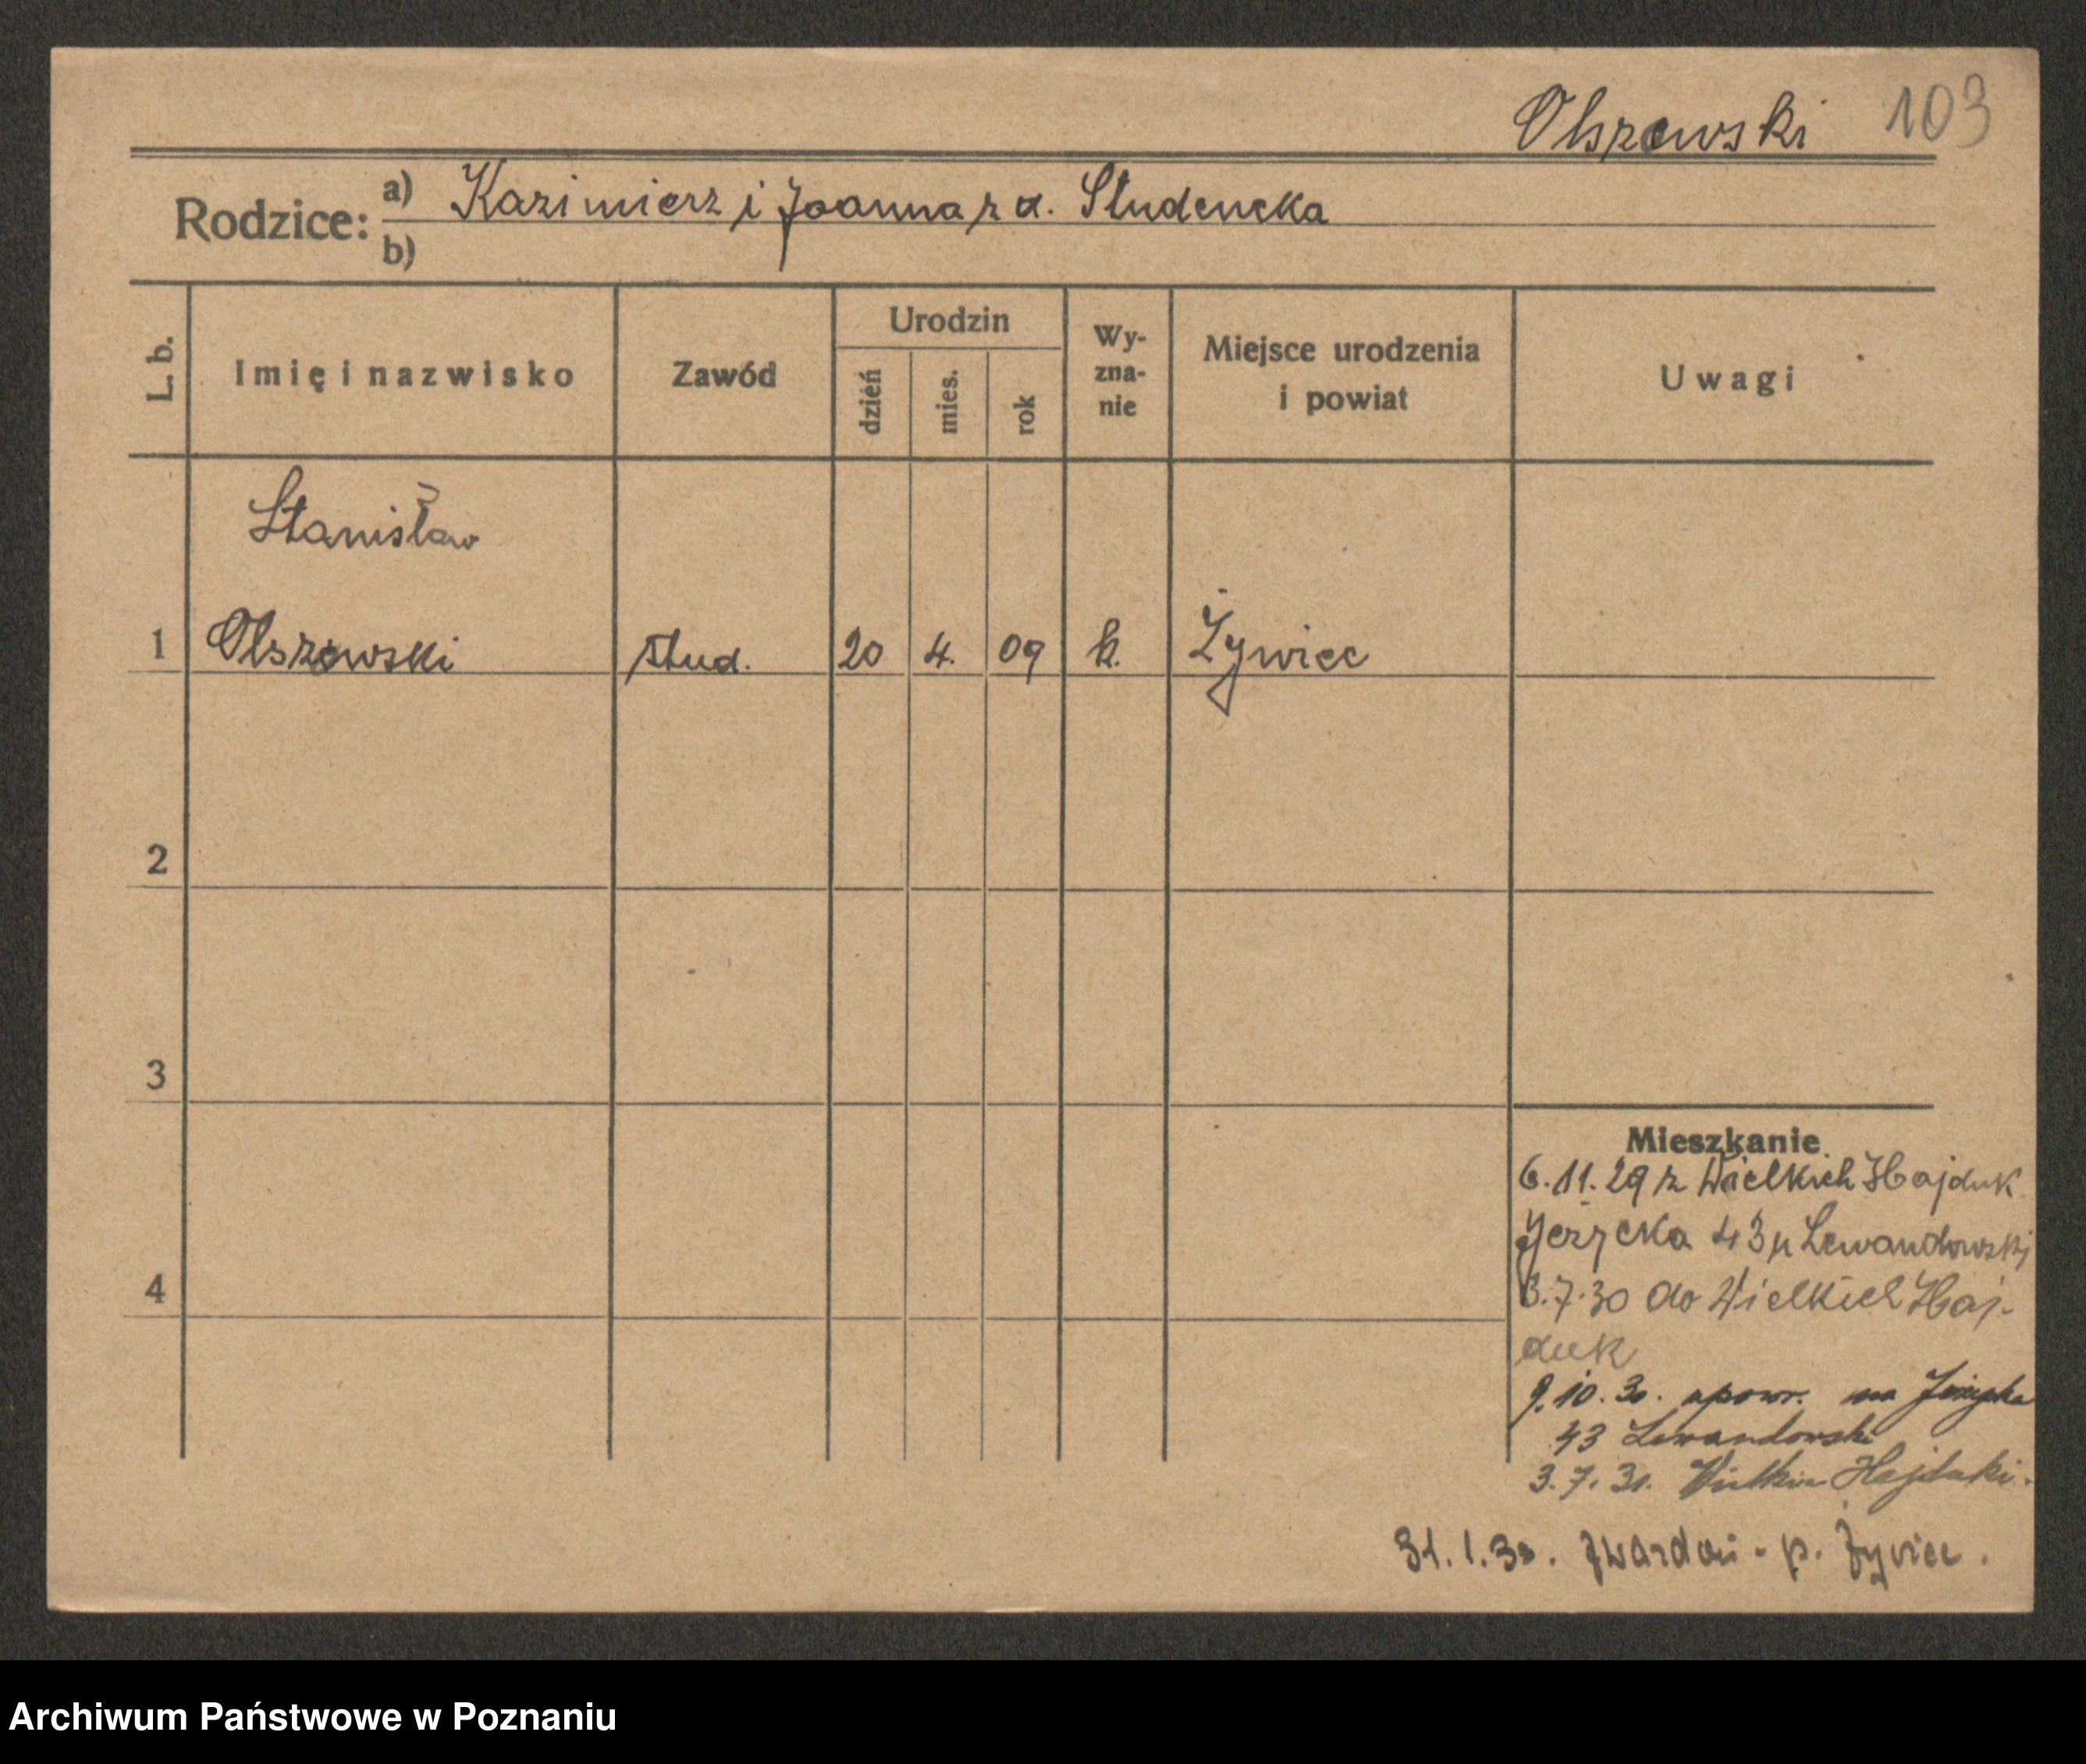 Olszowski 103
Rodzice: a) Kazimierz i Joanna z d. Studencka
b)
L. b. Imię i nazwisko Zawód Urodzin dzień mies. rok Wy-zna-nie Miejsce urodzenia i powiat Uwagi
Stanisław
1 Olszowski stud. 20 4. 09 k. Żywiec
2
3
Mieszkanie
6.11.29 z Wielkich Hajduk
Jeżycka 43 u Lewandowski
4
3.7.30 do Wielkich Haj-
duk
9.10.30. na
43 Lewandowski
3.7.31. Wielkie Hajduki.
31.1. Zwardoń - p. Żywiec.
Archiwum Państwowe w Poznaniu